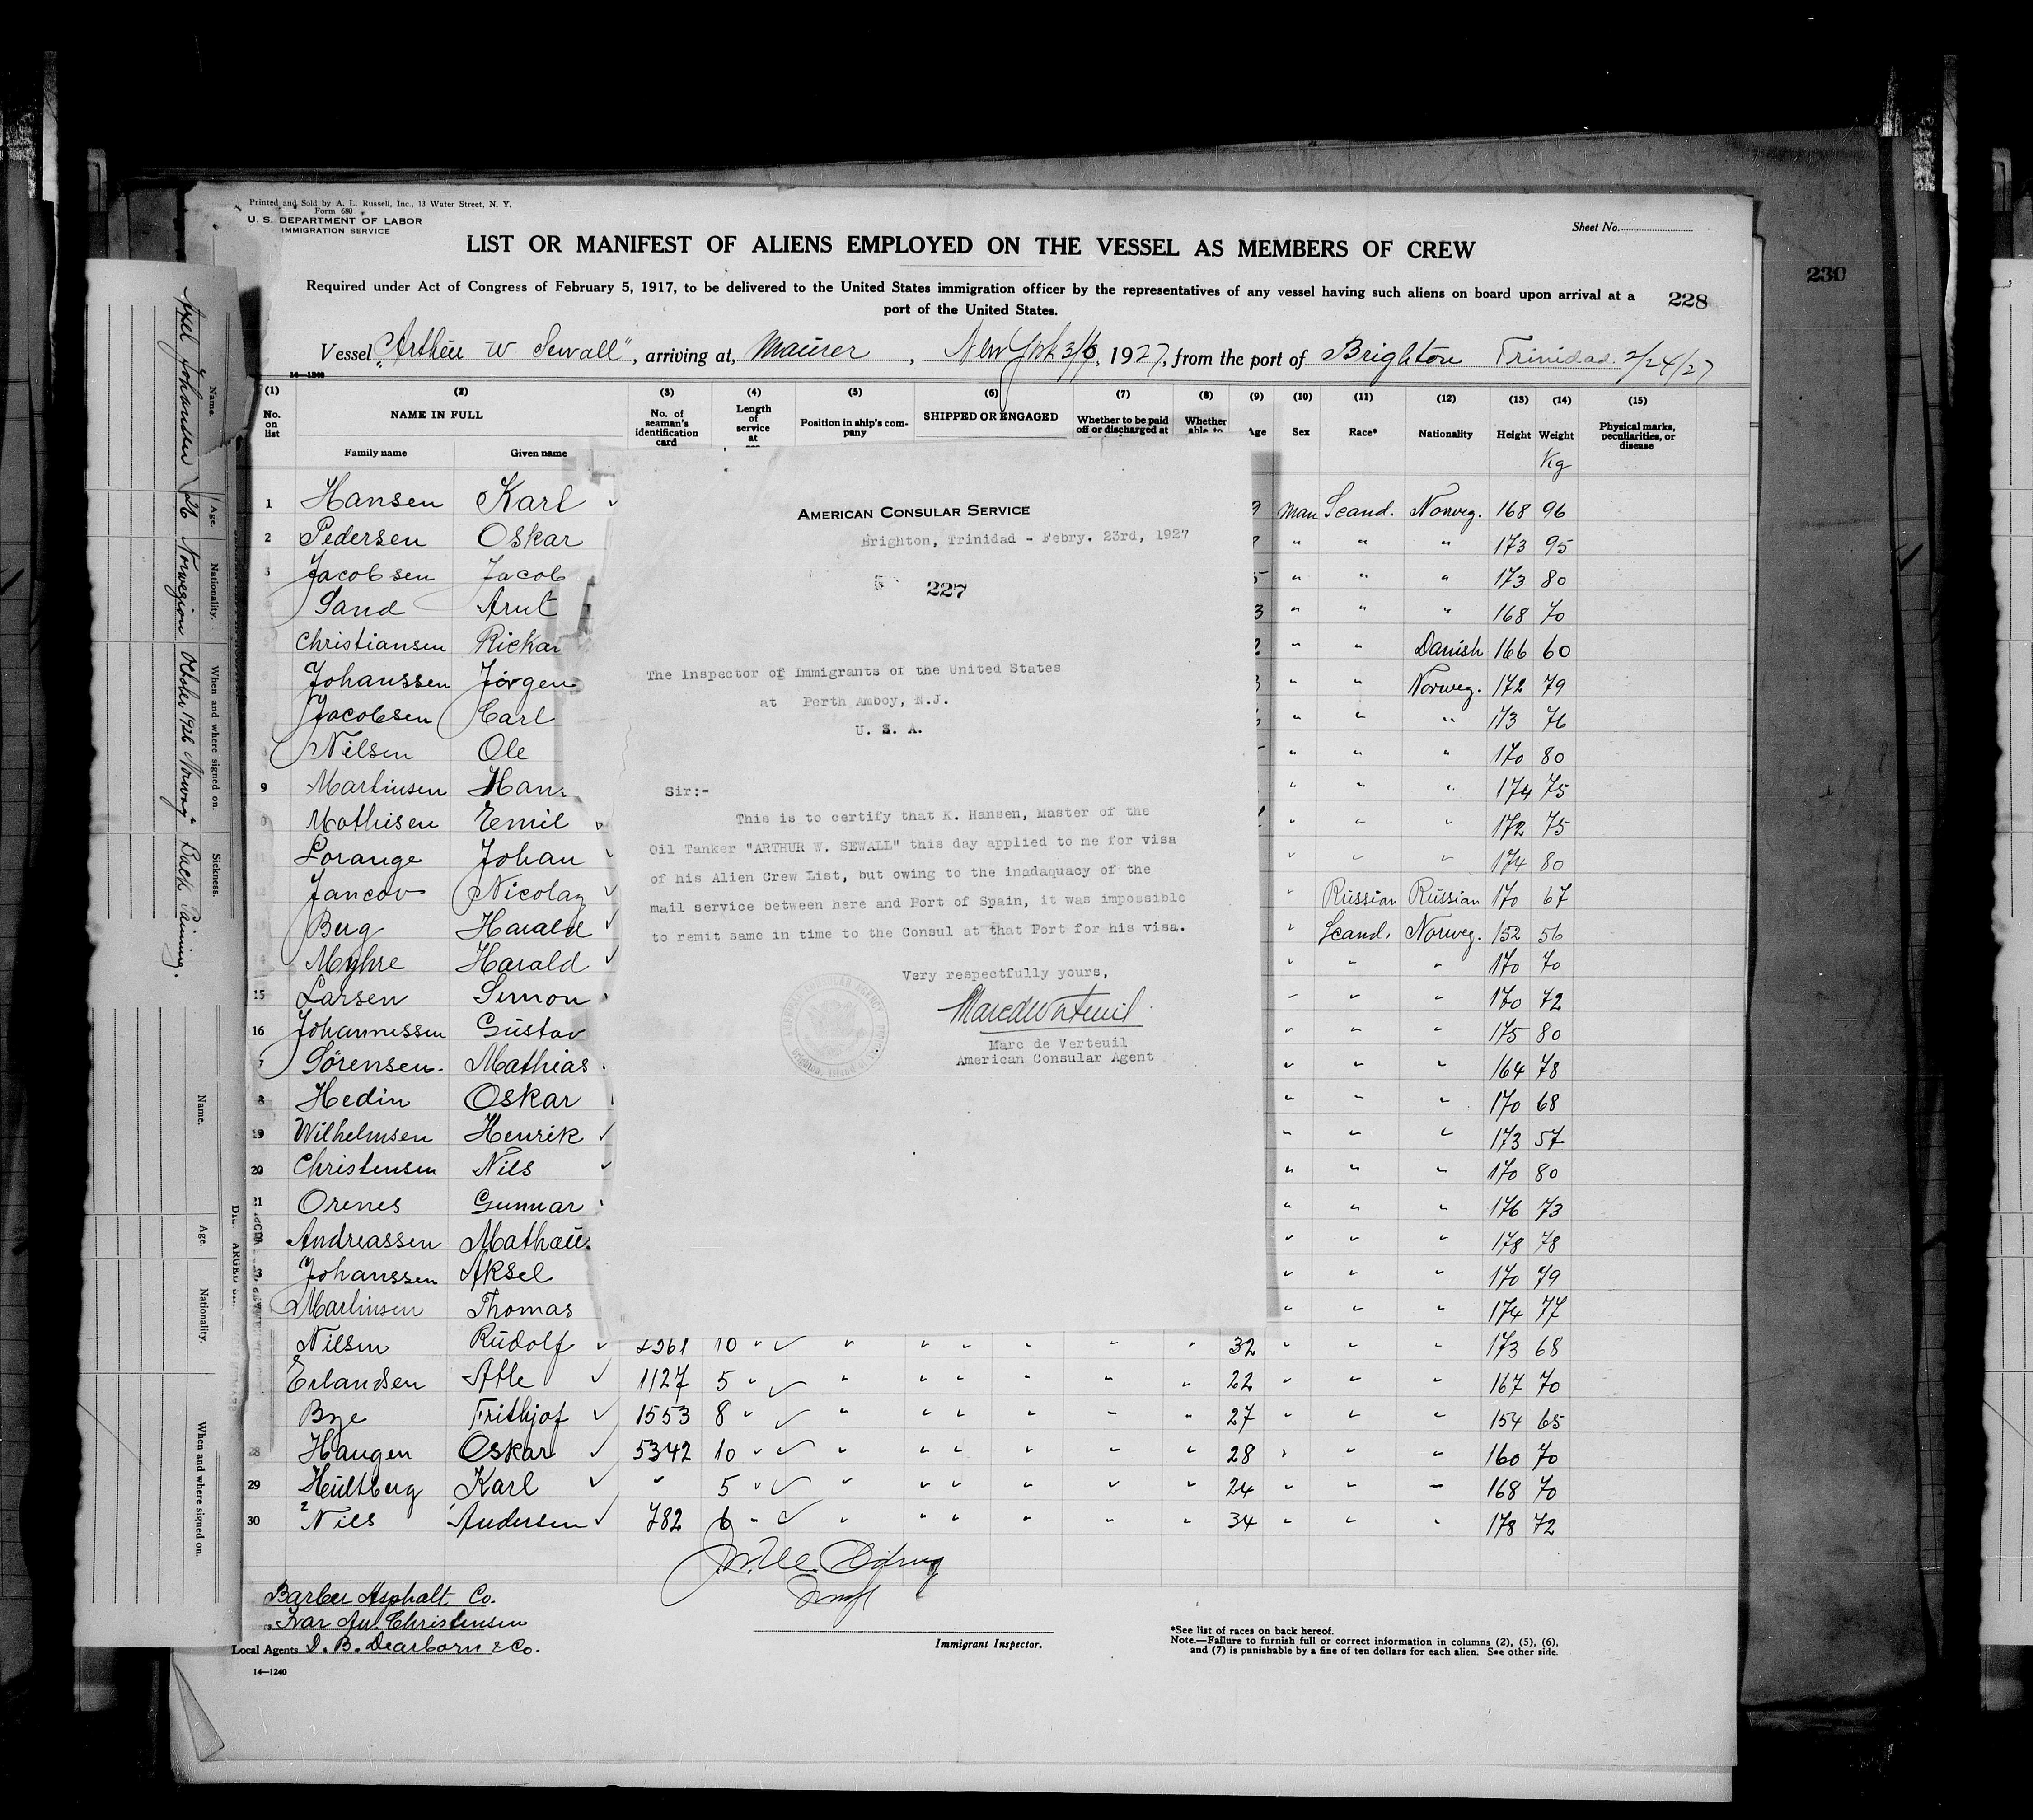 Printed and Sold by A. L. Russell, Inc., 13 Water Street, N. Y.
Form 680
U. S. DEPARTMENT OF LABOR
IMMIGRATION SERVICE
Sheet No.
LIST OR MANIFEST OF ALIENS EMPLOYED ON THE VESSEL AS MEMBERS OF CREW
Required under Act of Congress of February 5, 1917, to be delivered to the United States immigration officer by the representatives of any vessel having such aliens on board upon arrival at a
port of the United States.
228
230
Vessel "Arthur W Sewall", arriving at, Maurer, New York 3/6, 1927, from the port of Brighton Trinidad 2/24/27
14—1240
(1) (2) (3) (4) (5) (6) (7) (8) (9) (10) (11) (12) (13) (14) (15)
No. on list NAME IN FULL No. of seaman's identification card Length of service at Position in ship's company SHIPPED OR ENGAGED Whether to be paid off or discharged at Whether able to Age Sex Race* Nationality Height Weight Physical marks, peculiarities, or disease
Family name Given name Kg
1 Hansen Karl 9 Man Scand. Norweg. 168 96
2 Pedersen Oskar " " " 173 95
Jacobsen Jacob " " " 173 80
Sand Arnt 3 " " " 168 70
Christiansen Rickar 2 " " Danish 166 60
Johanssen Jörgen 3 " " Norweg. 172 79
Jacobsen Carl " " " 173 76
Nilsen Ole " " " 170 80
9 Martinsen Han " " " 174 75
Mathisen Emil " " " 172 75
Lorange Johan " " " 174 80
Jancov Nicolay " Russian Russian 170 67
Berg Harald " Scand. Norweg. 152 56
Myhre Harald " " " 170 70
15 Larsen Simon " " " 170 72
16 Johannessen Gustav " " " 175 80
7 Sørensen Mathias " " " 164 78
8 Hedin Oskar " " " 170 68
19 Wilhelmsen Henrik " " " 173 57
20 Christensen Nils " " " 170 80
21 Orenes Gunnar " " " 176 73
Andreassen Mathau " " " 178 78
3 Johanssen Aksel " " " 170 79
Martinsen Thomas " " " 174 77
Nilsen Rudolf 10 " " " " " " " 32 " " " 173 68
Erlandsen Atle 1127 5 " " " " " " " 22 " " " 167 70
Bye Frithjof 1553 8 " " " " " " " 27 " " " 154 65
28 Haugen Oskar 5342 10 " " " " " " " 28 " " " 160 70
29 Hultberg Karl " 5 " " " " " " " 24 " " " 168 70
30 Nils Andersen 782 6 " " " " " " " 34 " " " 178 72
AMERICAN CONSULAR SERVICE
Brighton, Trinidad - Febry. 23rd, 1927
227
The Inspector of Immigrants of the United States
at Perth Amboy, N.J.
U. S. A.
Sir:-
This is to certify that K. Hansen, Master of the
Oil Tanker "ARTHUR W. SEWALL" this day applied to me for visa
of his Alien Crew List, but owing to the inadaquacy of the
mail service between here and Port of Spain, it was impossible
to remit same in time to the Consul at that Port for his visa.
Very respectfully yours,
Marc de Verteuil
Marc de Verteuil
American Consular Agent
Barber Asphalt Co.
Ivar An. Christensen
Local Agents D. B. Dearborn & Co.
14—1240
Immigrant Inspector.
*See list of races on back hereof.
Note.—Failure to furnish full or correct information in columns (2), (5), (6),
and (7) is punishable by a fine of ten dollars for each alien. See other side.
Name. Age. Nationality. When and where signed on. Sickness.
Axel Johansen 26 Norwegion October 1926 Norway Back Paining.
Name. Age. Nationality. When and where signed on.